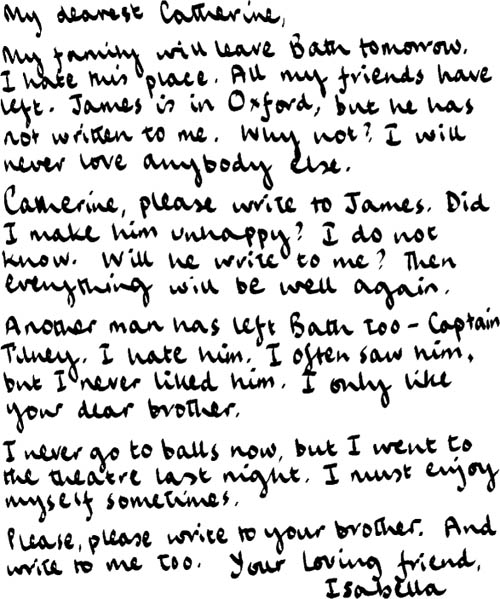 My dearest Catherine,
My family will leave Bath tomorrow.
I hate this place. All my friends have
left. James is in Oxford, but he has
not written to me. Why not? I will
never love anybody else.
Catherine, please write to James. Did
I make him unhappy? I do not
know. Will he write to me? Then
everything will be well again.
Another man has left Bath too - Captain
Tilney. I hate him. I often saw him,
but I never liked him. I only like
your dear brother.
I never go to balls now, but I went to
the theatre last night. I must enjoy
myself sometimes.
Please, please write to your brother. And
write to me too. Your loving friend,
Isabella